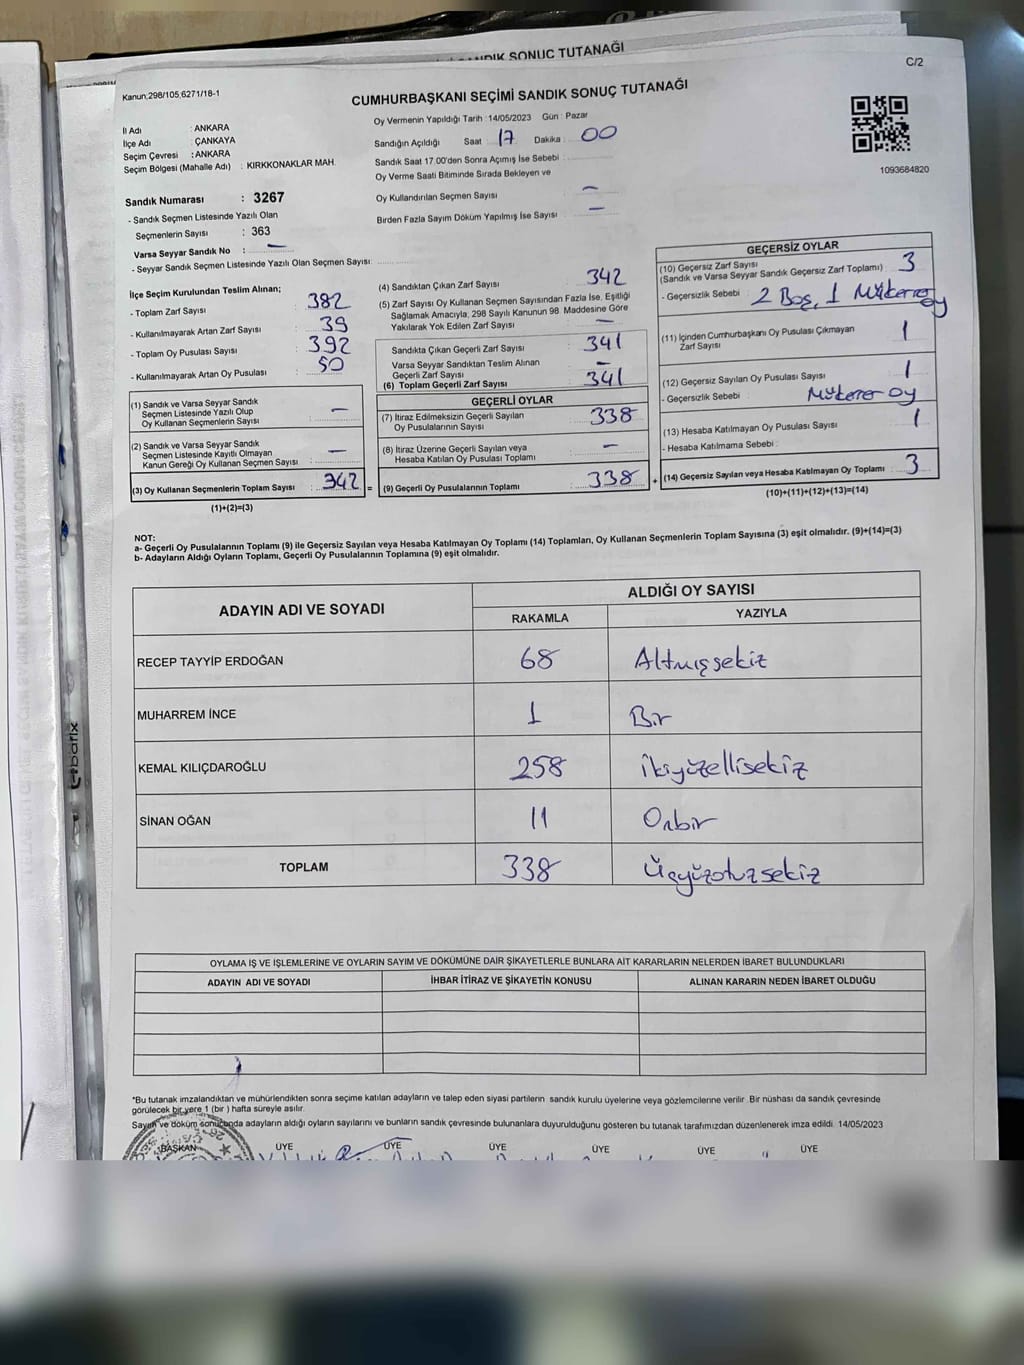 SANDIK SONUÇ TUTANAĞI
C/2
Kanun;298/105,6271/18-1
CUMHURBAŞKANI SEÇİMİ SANDIK SONUÇ TUTANAĞI
İl Adı : ANKARA
İlçe Adı : ÇANKAYA
Seçim Çevresi : ANKARA
Seçim Bölgesi (Mahalle Adı) : KIRKKONAKLAR MAH.
Oy Vermenin Yapıldığı Tarih : 14/05/2023 Gün : Pazar
Sandığın Açıldığı Saat : 17 Dakika : 00
Sandık Saat 17.00'den Sonra Açımış İse Sebebi :
Oy Verme Saati Bitiminde Sırada Bekleyen ve
Oy Kullandırılan Seçmen Sayısı : —
Birden Fazla Sayım Döküm Yapılmış İse Sayısı : —
1093684820
Sandık Numarası : 3267
- Sandık Seçmen Listesinde Yazılı Olan
Seçmenlerin Sayısı : 363
Varsa Seyyar Sandık No : —
- Seyyar Sandık Seçmen Listesinde Yazılı Olan Seçmen Sayısı:
İlçe Seçim Kurulundan Teslim Alınan;
- Toplam Zarf Sayısı : 382
- Kullanılmayarak Artan Zarf Sayısı : 39
- Toplam Oy Pusulası Sayısı : 392
- Kullanılmayarak Artan Oy Pusulası : 50
(1) Sandık ve Varsa Seyyar Sandık
Seçmen Listesinde Yazılı Olup
Oy Kullanan Seçmenlerin Sayısı : —
(2) Sandık ve Varsa Seyyar Sandık
Seçmen Listesinde Kayıtlı Olmayan
Kanun Gereği Oy Kullanan Seçmen Sayısı : —
(3) Oy Kullanan Seçmenlerin Toplam Sayısı : 342 =
(1)+(2)=(3)
(4) Sandıktan Çıkan Zarf Sayısı : 342
(5) Zarf Sayısı Oy Kullanan Seçmen Sayısından Fazla İse, Eşitliği
Sağlamak Amacıyla, 298 Sayılı Kanunun 98. Maddesine Göre
Yakılarak Yok Edilen Zarf Sayısı : —
Sandıkta Çıkan Geçerli Zarf Sayısı : 341
Varsa Seyyar Sandıktan Teslim Alınan
Geçerli Zarf Sayısı : —
(6) Toplam Geçerli Zarf Sayısı : 341
GEÇERLİ OYLAR
(7) İtiraz Edilmeksizin Geçerli Sayılan
Oy Pusulalarının Sayısı : 338
(8) İtiraz Üzerine Geçerli Sayılan veya
Hesaba Katılan Oy Pusulası Toplamı : —
(9) Geçerli Oy Pusulalarının Toplamı : 338 +
GEÇERSİZ OYLAR
(10) Geçersiz Zarf Sayısı
(Sandık ve Varsa Seyyar Sandık Geçersiz Zarf Toplamı) : 3
- Geçersizlik Sebebi : 2 Boş, 1 Mükerrer oy
(11) İçinden Cumhurbaşkanı Oy Pusulası Çıkmayan
Zarf Sayısı : 1
(12) Geçersiz Sayılan Oy Pusulası Sayısı : 1
- Geçersizlik Sebebi : Mükerrer oy
(13) Hesaba Katılmayan Oy Pusulası Sayısı : 1
- Hesaba Katılmama Sebebi :
(14) Geçersiz Sayılan veya Hesaba Katılmayan Oy Toplamı : 3
(10)+(11)+(12)+(13)=(14)
NOT:
a- Geçerli Oy Pusulalarının Toplamı (9) ile Geçersiz Sayılan veya Hesaba Katılmayan Oy Toplamı (14) Toplamları, Oy Kullanan Seçmenlerin Toplam Sayısına (3) eşit olmalıdır. (9)+(14)=(3)
b- Adayların Aldığı Oyların Toplamı, Geçerli Oy Pusulalarının Toplamına (9) eşit olmalıdır.
ADAYIN ADI VE SOYADI
ALDIĞI OY SAYISI
RAKAMLA YAZIYLA
RECEP TAYYİP ERDOĞAN 68 Altmışsekiz
MUHARREM İNCE 1 Bir
KEMAL KILIÇDAROĞLU 258 ikiyüzellisekiz
SİNAN OĞAN 11 Onbir
TOPLAM 338 Üçyüzotuzsekiz
OYLAMA İŞ VE İŞLEMLERİNE VE OYLARIN SAYIM VE DÖKÜMÜNE DAİR ŞİKAYETLERLE BUNLARA AİT KARARLARIN NELERDEN İBARET BULUNDUKLARI
ADAYIN ADI VE SOYADI İHBAR İTİRAZ VE ŞİKAYETİN KONUSU ALINAN KARARIN NEDEN İBARET OLDUĞU
*Bu tutanak imzalandıktan ve mühürlendikten sonra seçime katılan adayların ve talep eden siyasi partilerin sandık kurulu üyelerine veya gözlemcilerine verilir. Bir nüshası da sandık çevresinde
görülecek bir yere 1 (bir ) hafta süreyle asılır.
Sayım ve döküm sonucunda adayların aldığı oyların sayılarını ve bunların sandık çevresinde bulunanlara duyurulduğunu gösteren bu tutanak tarafımızdan düzenlenerek imza edildi. 14/05/2023
BAŞKAN ÜYE ÜYE ÜYE ÜYE ÜYE ÜYE